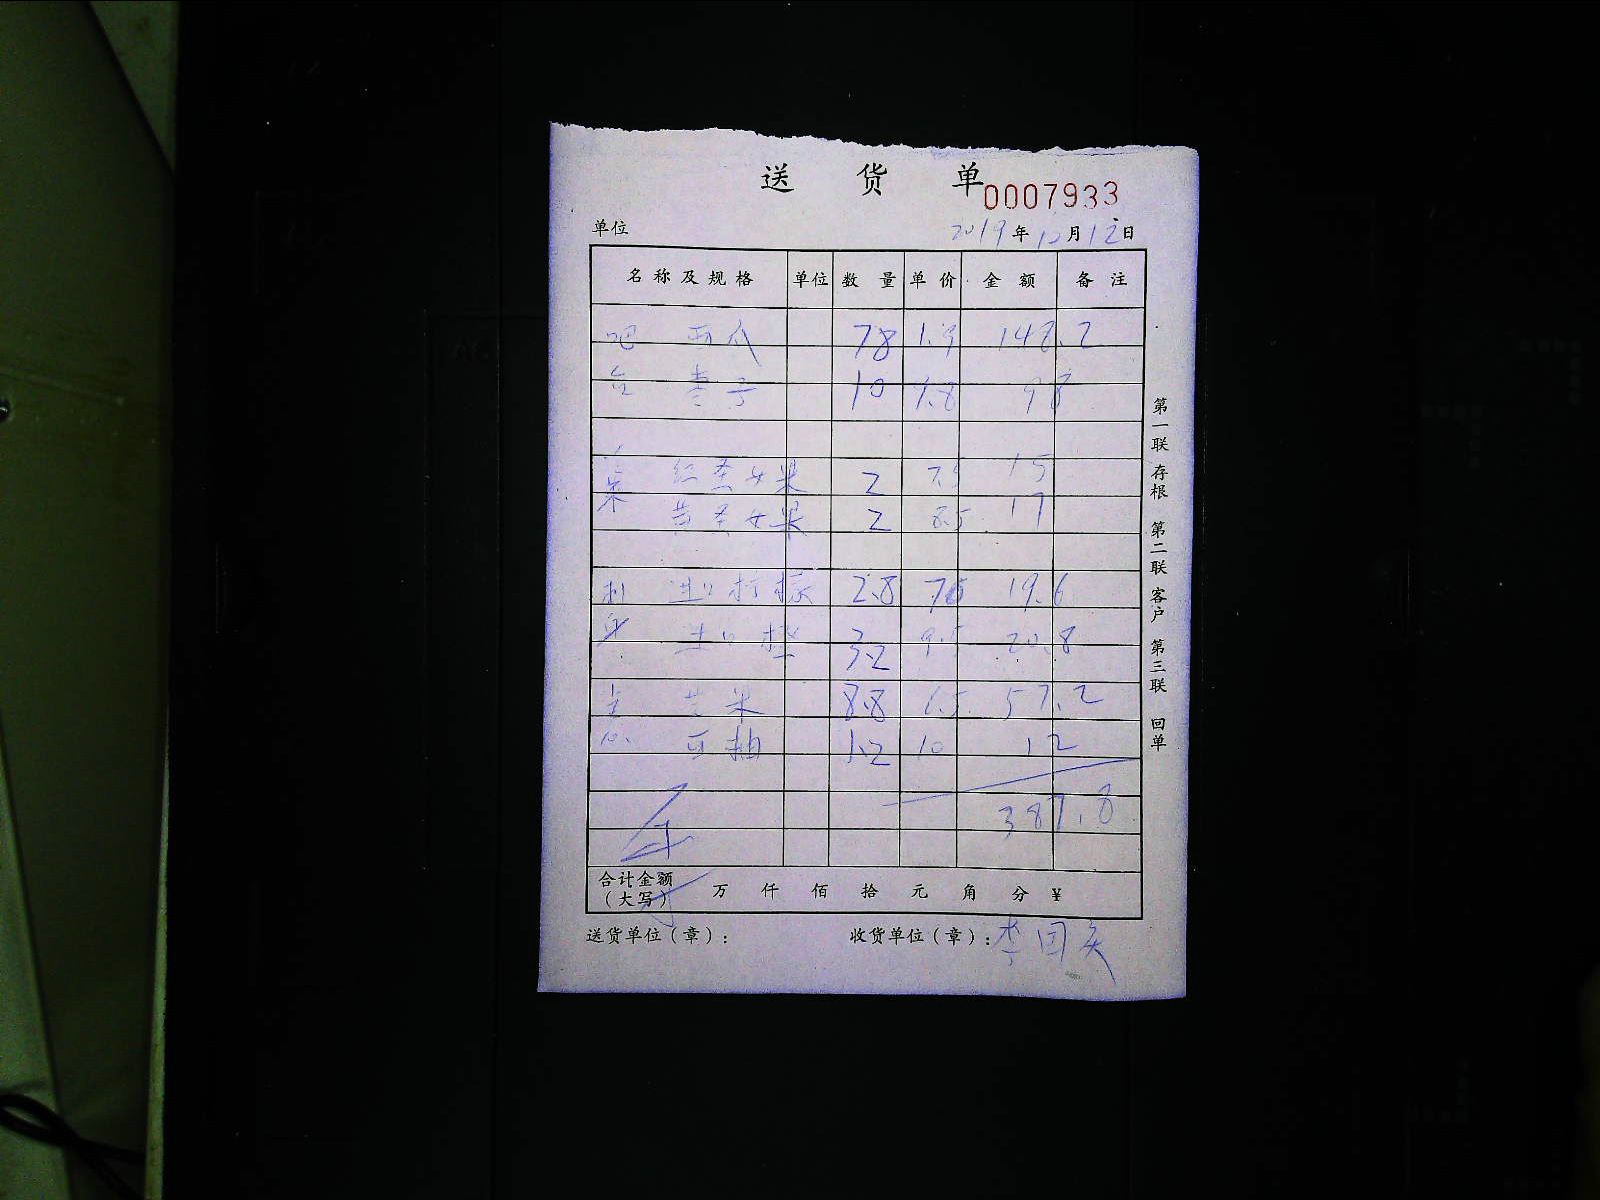 送 货 单 0007933
单位 2019年12月12日
名称及规格 单位 数量 单价 金额 备注
吧 西瓜 78 1.9 148.2
台 壹号 10 9.8 98
红圣女果 2 7.5 15
菜 黄圣女果 2 8.5 17
刺 进口柠檬 2.8 7 19.6
身 进口橙 3.2 20.8
兰米 8.8 6.5 57.2
豆抽 1.2 10 12
387.8
合计金额
(大写) 万 仟 佰 拾 元 角 分 ¥
送货单位(章): 收货单位(章):李回
第一联 存根 第二联 客户 第三联 回单